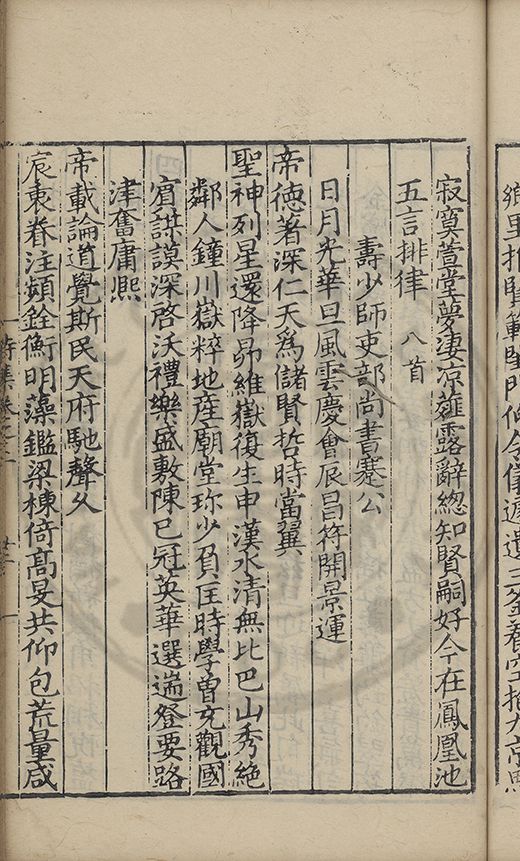 鄉里推賢範門仰令儀三釜養空抱
寂寞萱堂夢凄凉薤露辭總知賢嗣好今在鳳凰池
五言排律 八首
壽少師吏部尚書蹇公
日月光華旦風雲慶會辰昌符開景運
帝德著深仁天爲儲賢哲時當翼
聖神列星還降昴維嶽復生申漢水清無比巴山秀絶
鄰人鐘川嶽粹地産廟堂珎少負匡時學曽充觀國
賔謀謨深啓沃禮樂盛敷陳已冠英華選耑登要路
津奮庸熈
帝載論道覺斯民天府馳聲久
宸衷眷注頻銓衡明藻鑑梁棟倚高旻共仰包荒量咸